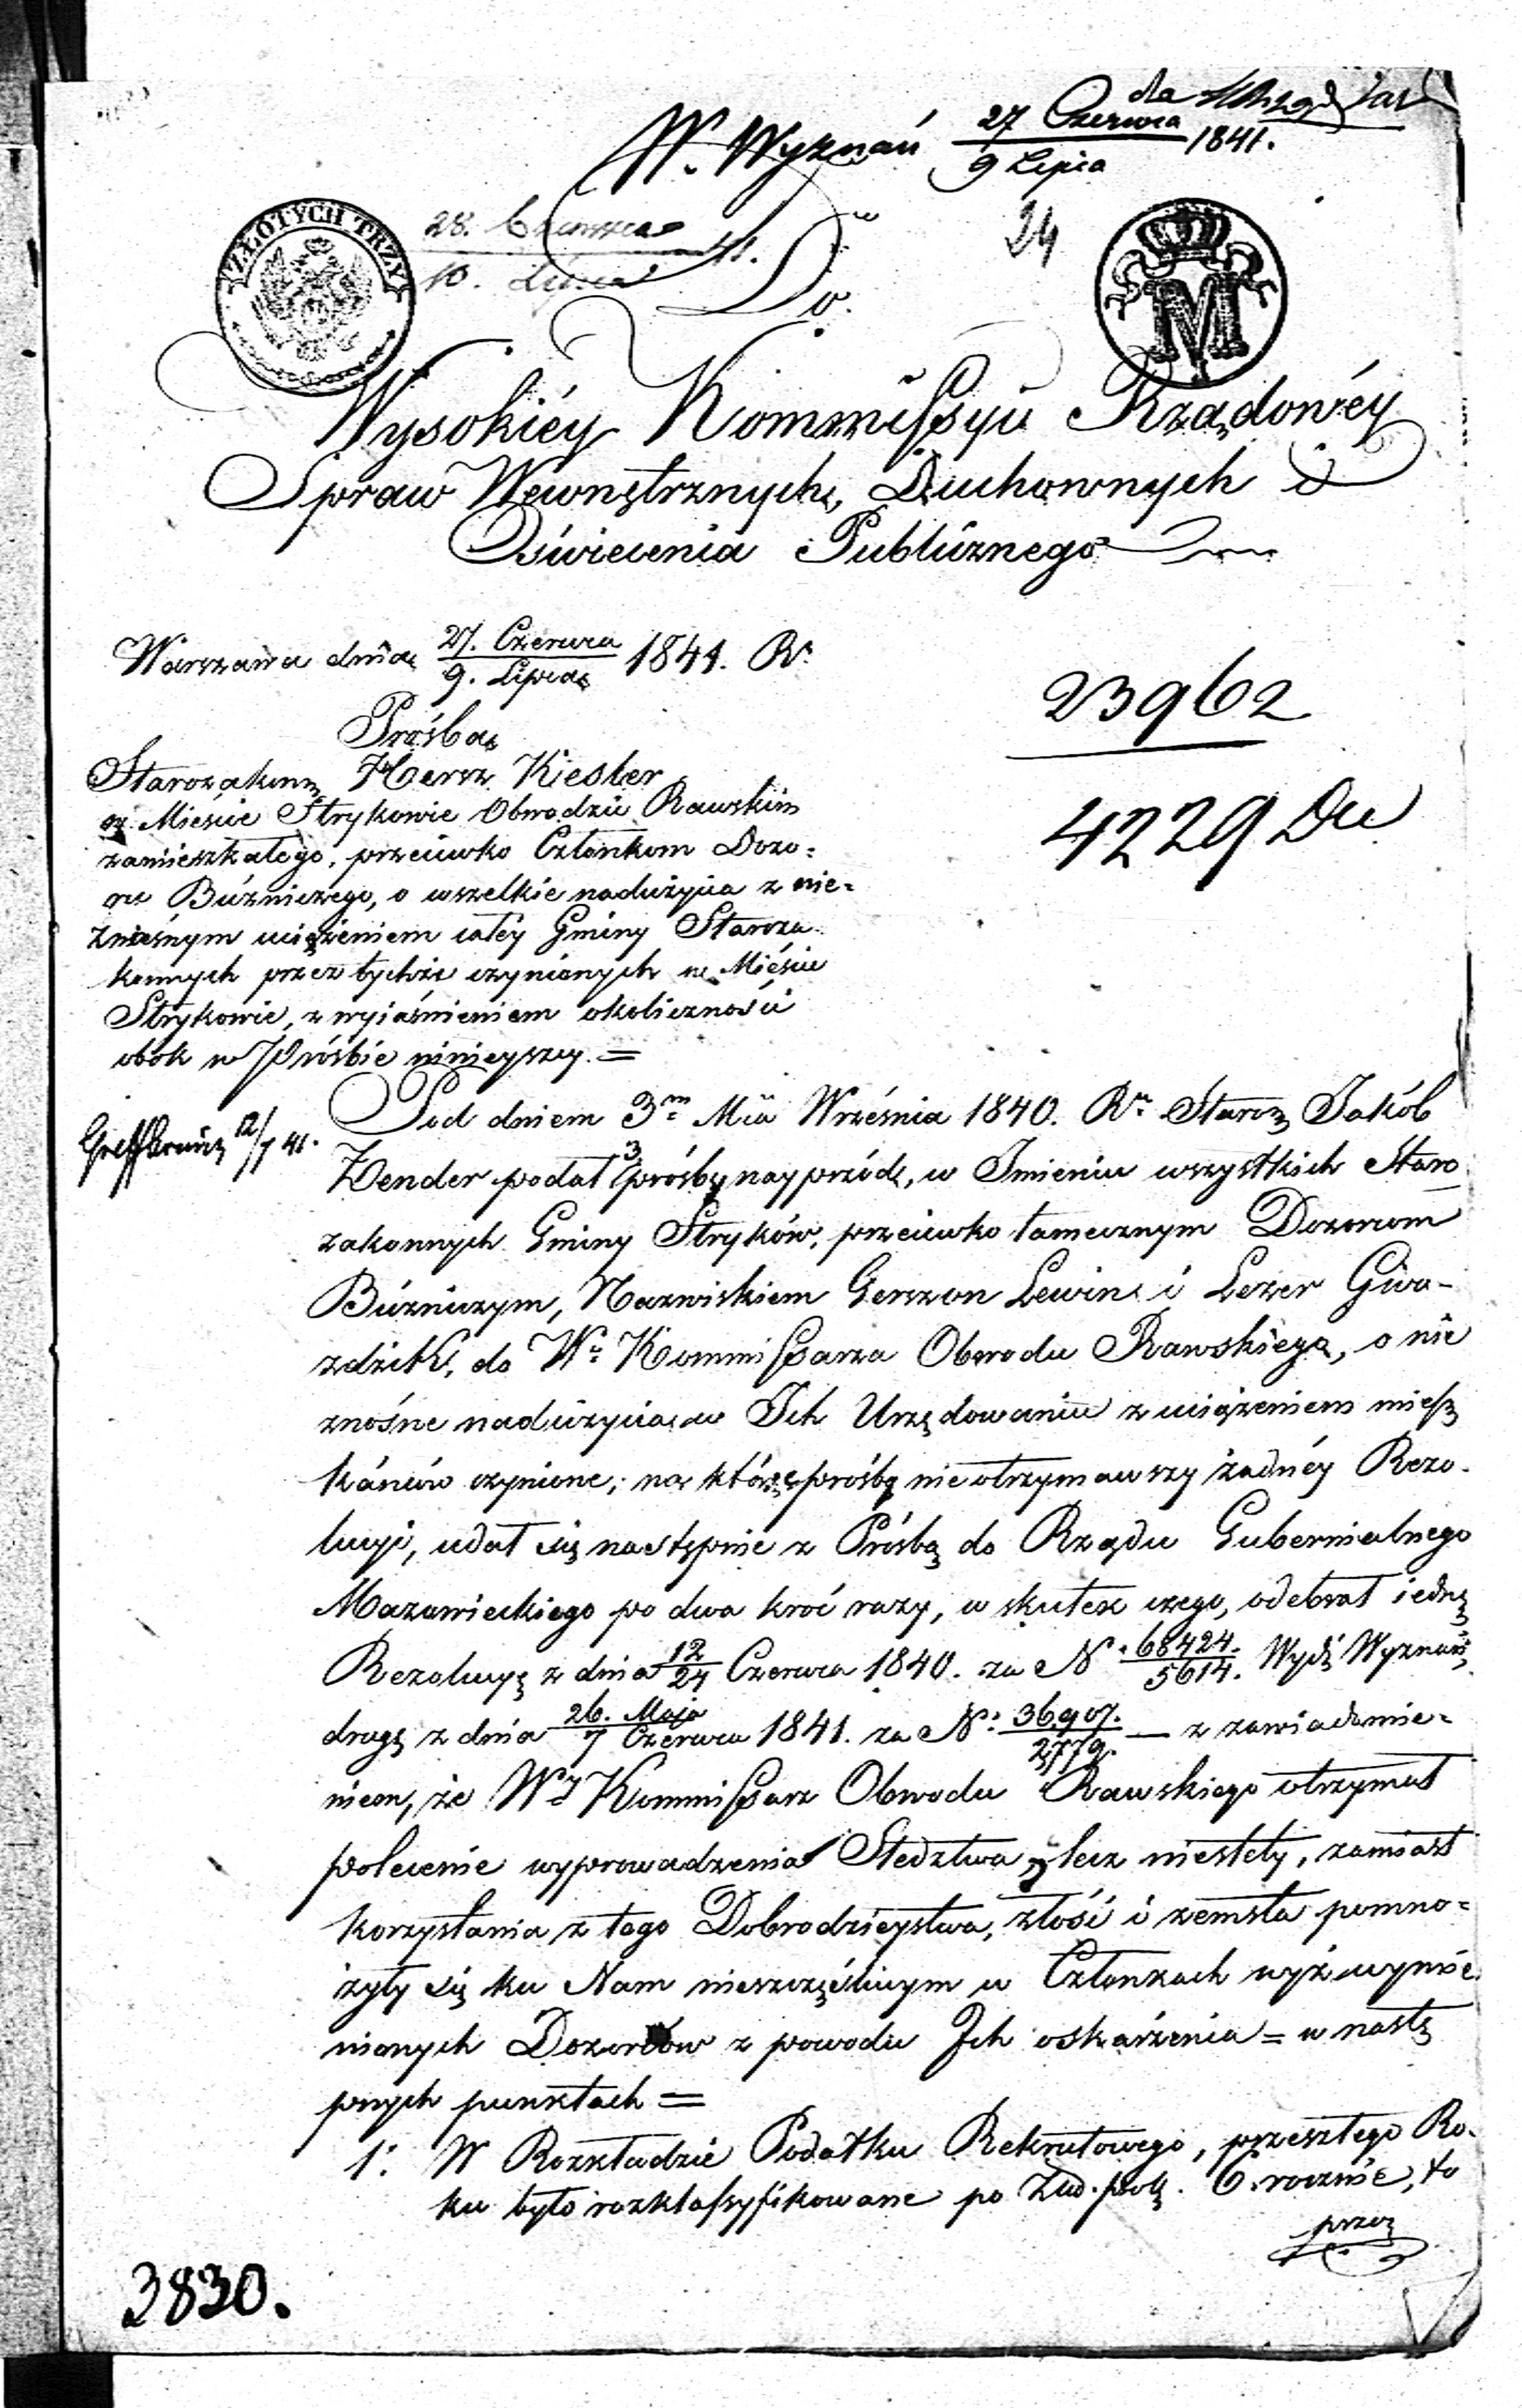 W. Wyznań 27 Czerwca / 9 Lipca 1841.
ZŁOTYCH TRZY
28. Czerwca / 10. Lipca 41.
24
M
Do
Wysokiéy Kommissyi Rządowéy
Spraw Wewnętrznych, Duchownych i
Oświecenia Publicznego
Warszawa dnia 27. Czerwca / 9. Lipca 1841. R.
23962
4229 Du
Prośba
Starozakon Hersz Kiesler
w Mieście Strykowie Obwodzie Rawskim
zamieszkałego, przeciwko Członkom Dozo=
ru Bóźniczego, o wszelkie nadużycia z nie=
znośnym uciążeniem całéy Gminy Staroza
konnych przez tychże czynionych w Mieście
Strykowie, z wyiaśnieniem okoliczności
obok w Prośbie ninieyszey. =
12/7 41.
Pod dniem 3m Mca Września 1840. Rn Staroz Jakób
Zender podał 3 prośby nayprzód, w Imieniu wszystkich Staro
zakonnych Gminy Stryków, przeciwko tamecznym Dozorcom
Bóźniczym, Nazwiskiem Gerszon Lewin i Lezer Gwia-
zdzik, do Wo Kommissarza Obwodu Rawskiego, o nie
znośne nadużycia w Ich Urzędowaniu z uciążeniem miesz
kańców czynione; na którą prośbę nieotrzymawszy żadnéy Rezo-
lucyi, udał się następnie z Prośbą do Rządu Gubernialnego
Mazowieckiego po dwa kroć razy, w skutek czego, odebrał iedną
Rezolucyę z dnia 12/24 Czerwca 1840. za N. 68424./5614. Wydź Wyznań,
drugą z dnia 26. Maja / 7 Czerwca 1841. za N: 36907./2779. — z zawiadomie=
niem, że Wy Kommissarz Obwodu Rawskiego otrzymał
polecenie wyprowadzenia Śledztwa, lecz niestety, zamiast
korzystania z tego Dobrodzieystwa, złość i zemsta pomno=
żyły się ku Nam nieszczęśliwym w Członkach wyż wymie
nionych Dozorców z powodu Ich oskarżenia = w nastę
pnych punktach =
1. W Rozkładzie Podatku Rekrutowego, przeszłego Ro-
ku było rozklassyfikowane po Zło. pol. 6. rocznie, to
przez
3830.